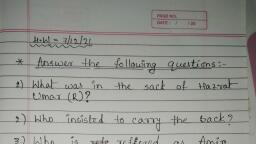 PAGE NO.
DATE: / / 20
H.W = 3/12/21
* Answer the following questions:-
1) What was in the sack of Hazrat
Umar (R)?
2) Who insisted to carry the back?
3) Who is refered as Amin